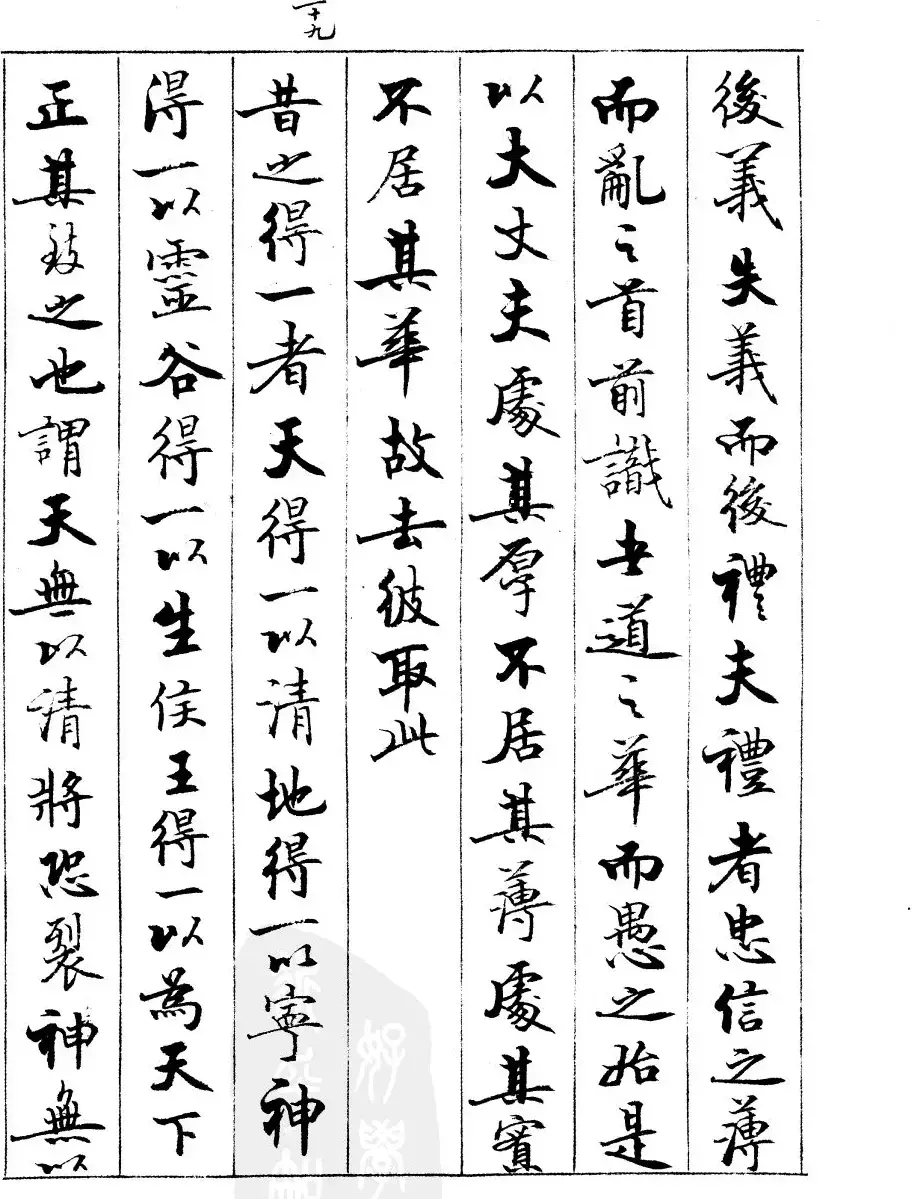 一十九
後義失義而後禮夫禮者忠信之薄
而亂之首前識者道之華而愚之始是
以大丈夫處其厚不居其薄處其實
不居其華故去彼取此
昔之得一者天得一以清地得一以寧神
得一以靈谷得一以生侯王得一以為天下
正其致之也謂天無以清將恐裂神無以
好學